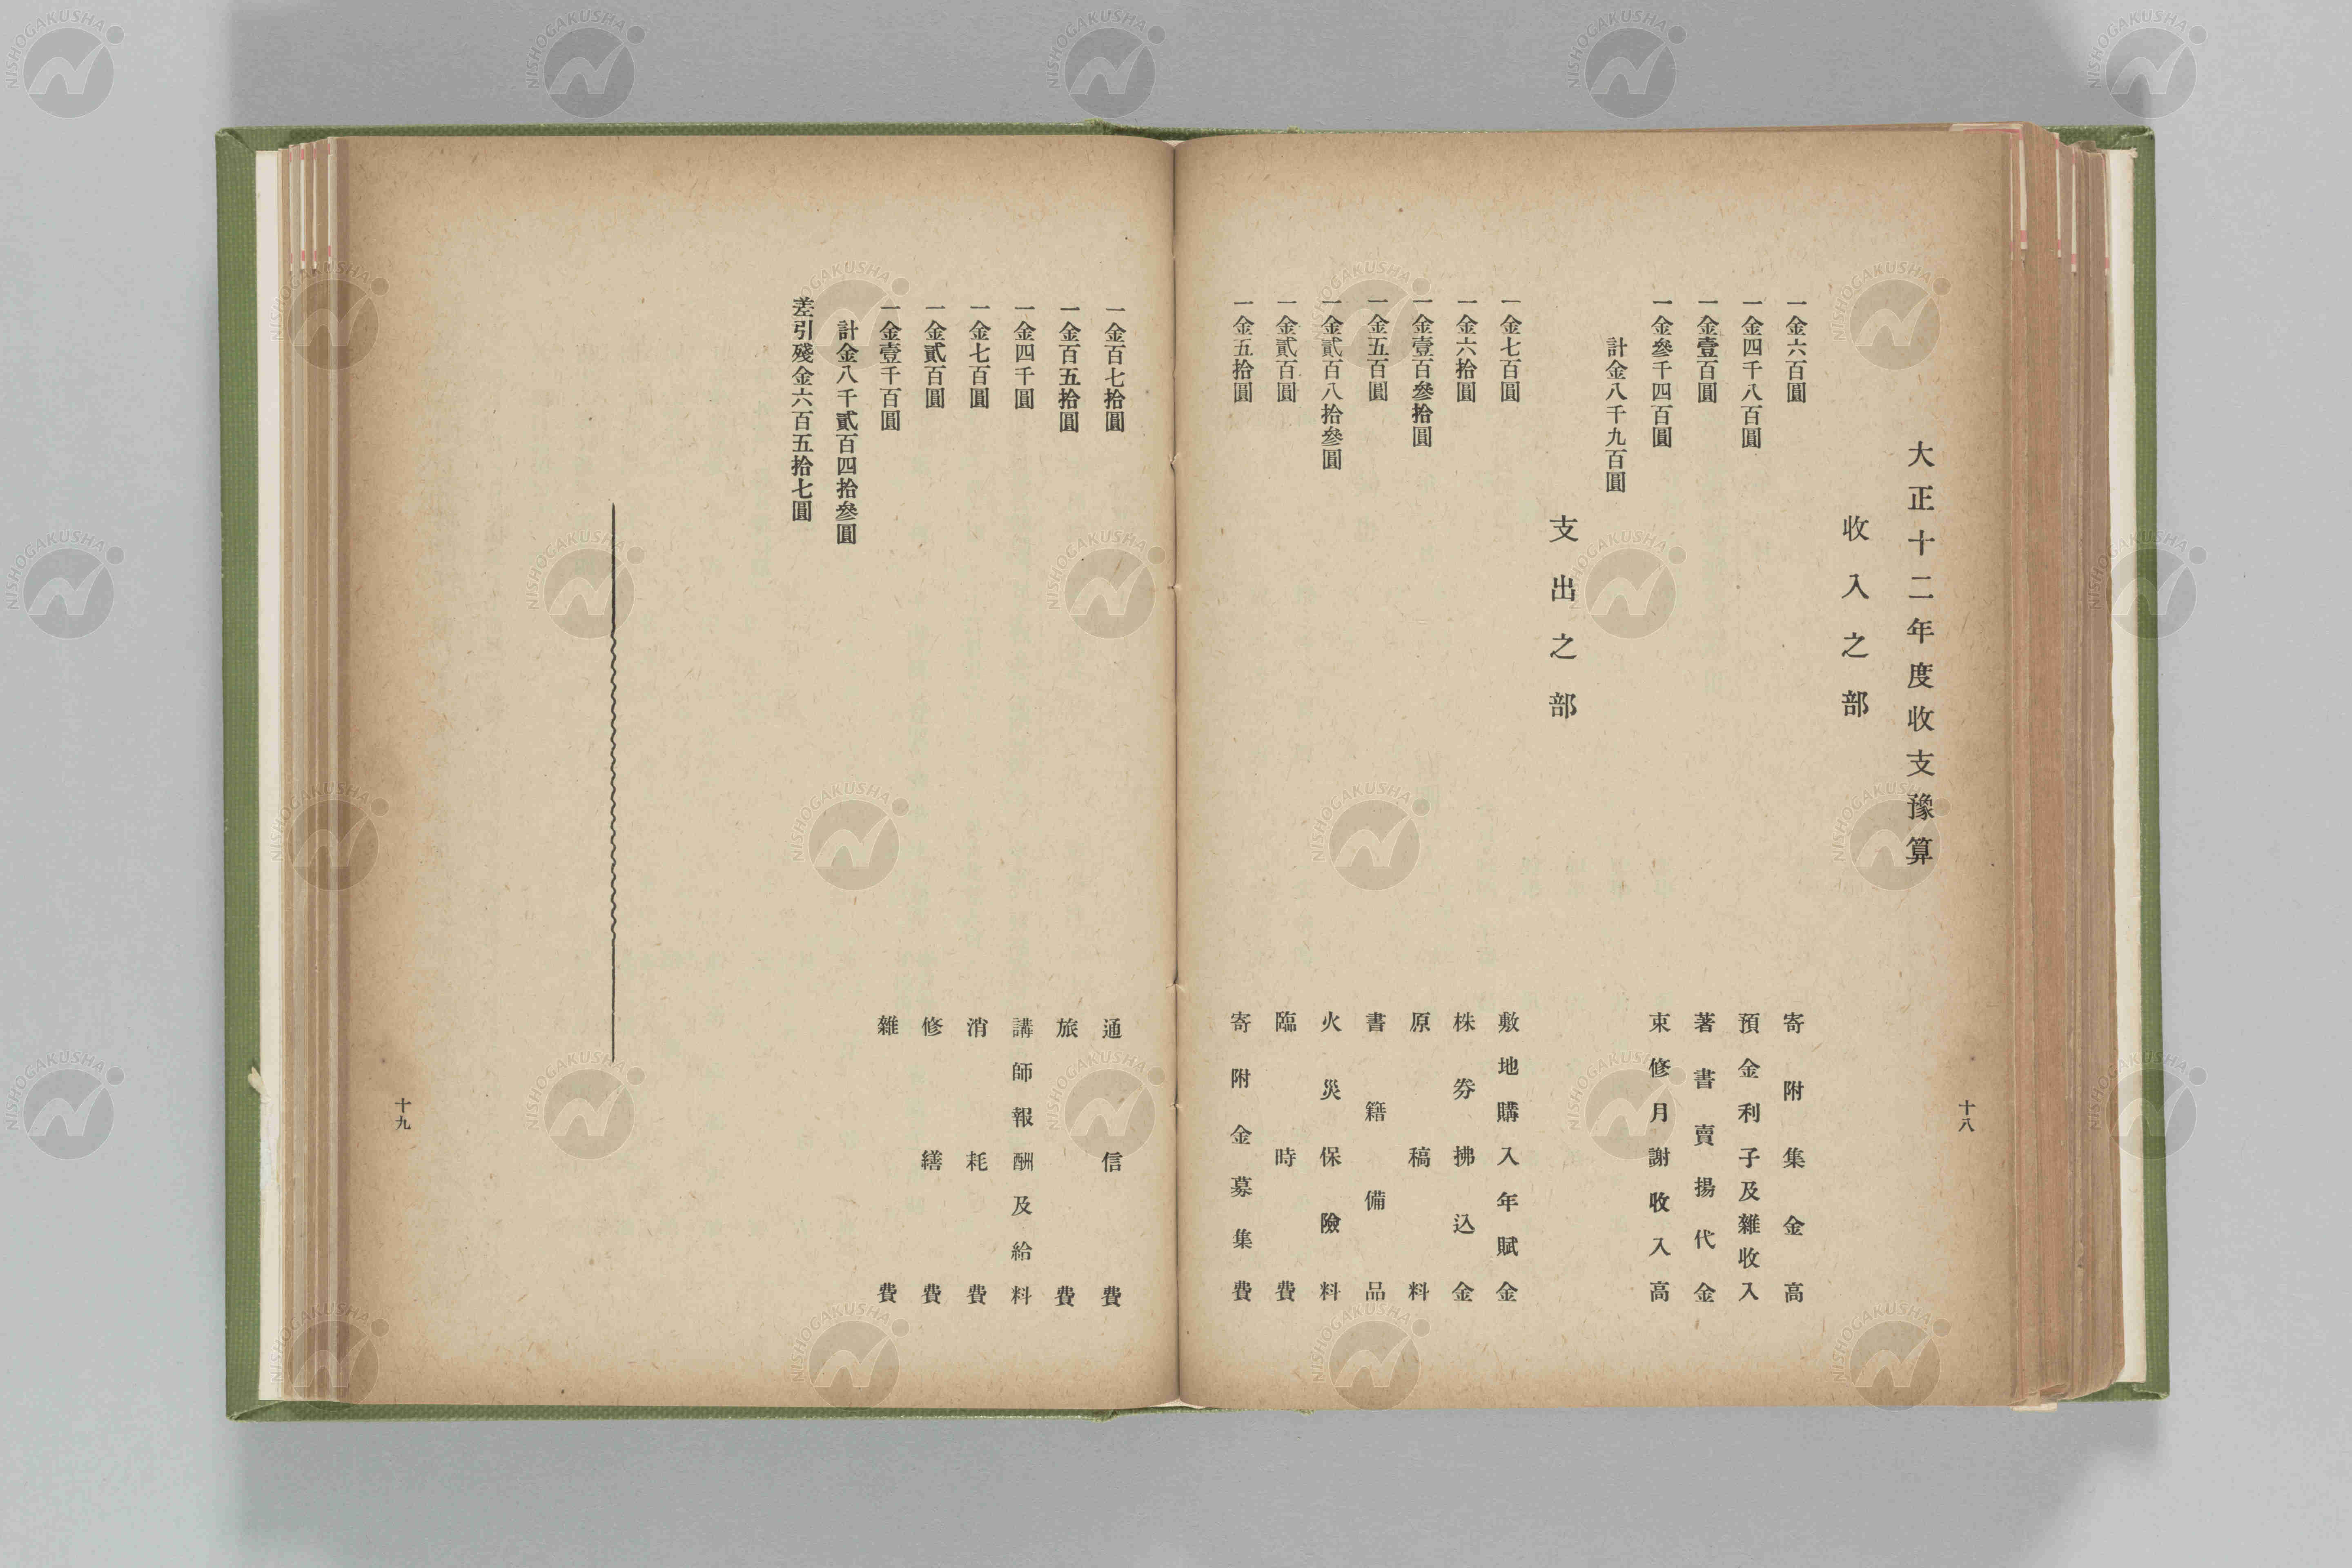 大正十二年度收支豫算
收入之部
一金六百圓　寄附集金高
一金四千八百圓　預金利子及雜收入
一金壹百圓　著書賣揚代金
一金參千四百圓　束修月謝收入高
計金八千九百圓
支出之部
一金七百圓　敷地購入年賦金
一金六拾圓　株券拂込金
一金壹百參拾圓　原稿料
一金五百圓　書籍備品
一金貳百八拾參圓　火災保險料
一金貳百圓　臨時費
一金五拾圓　寄附金募集費
十八
一金百七拾圓　通信費
一金百五拾圓　旅費
一金四千圓　講師報酬及給料
一金七百圓　消耗費
一金貳百圓　修繕費
一金壹千百圓　雜費
計金八千貳百四拾參圓
差引殘金六百五拾七圓
十九
NISHOGAKUSHA